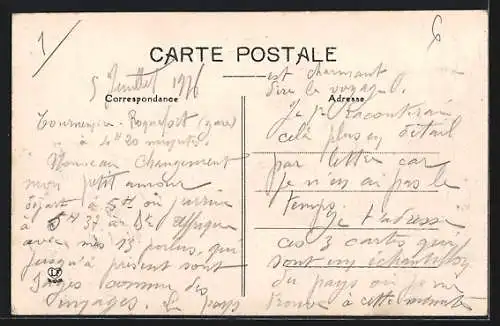 1
6
CARTE POSTALE
5 Juillet 1916
Correspondance
Adresse
Tournemire - Roquefort (gare)
à 4 H 20 minutes
Nouveau changement
mon petit amour
départ à 5H où j'arrive
à 5H 37 à St Affrique
avec mes 13 poilus, qui
jusqu'à présent sont
sages comme des
images. Le pays
est charmant
dire le voyage.
Je te raconterai
celà plus en détail
par lettre car
je n'en ai pas le
temps, je t'adresse
ces 3 cartes qui
sont un échantillon
du pays où je me
trouve à cette minute